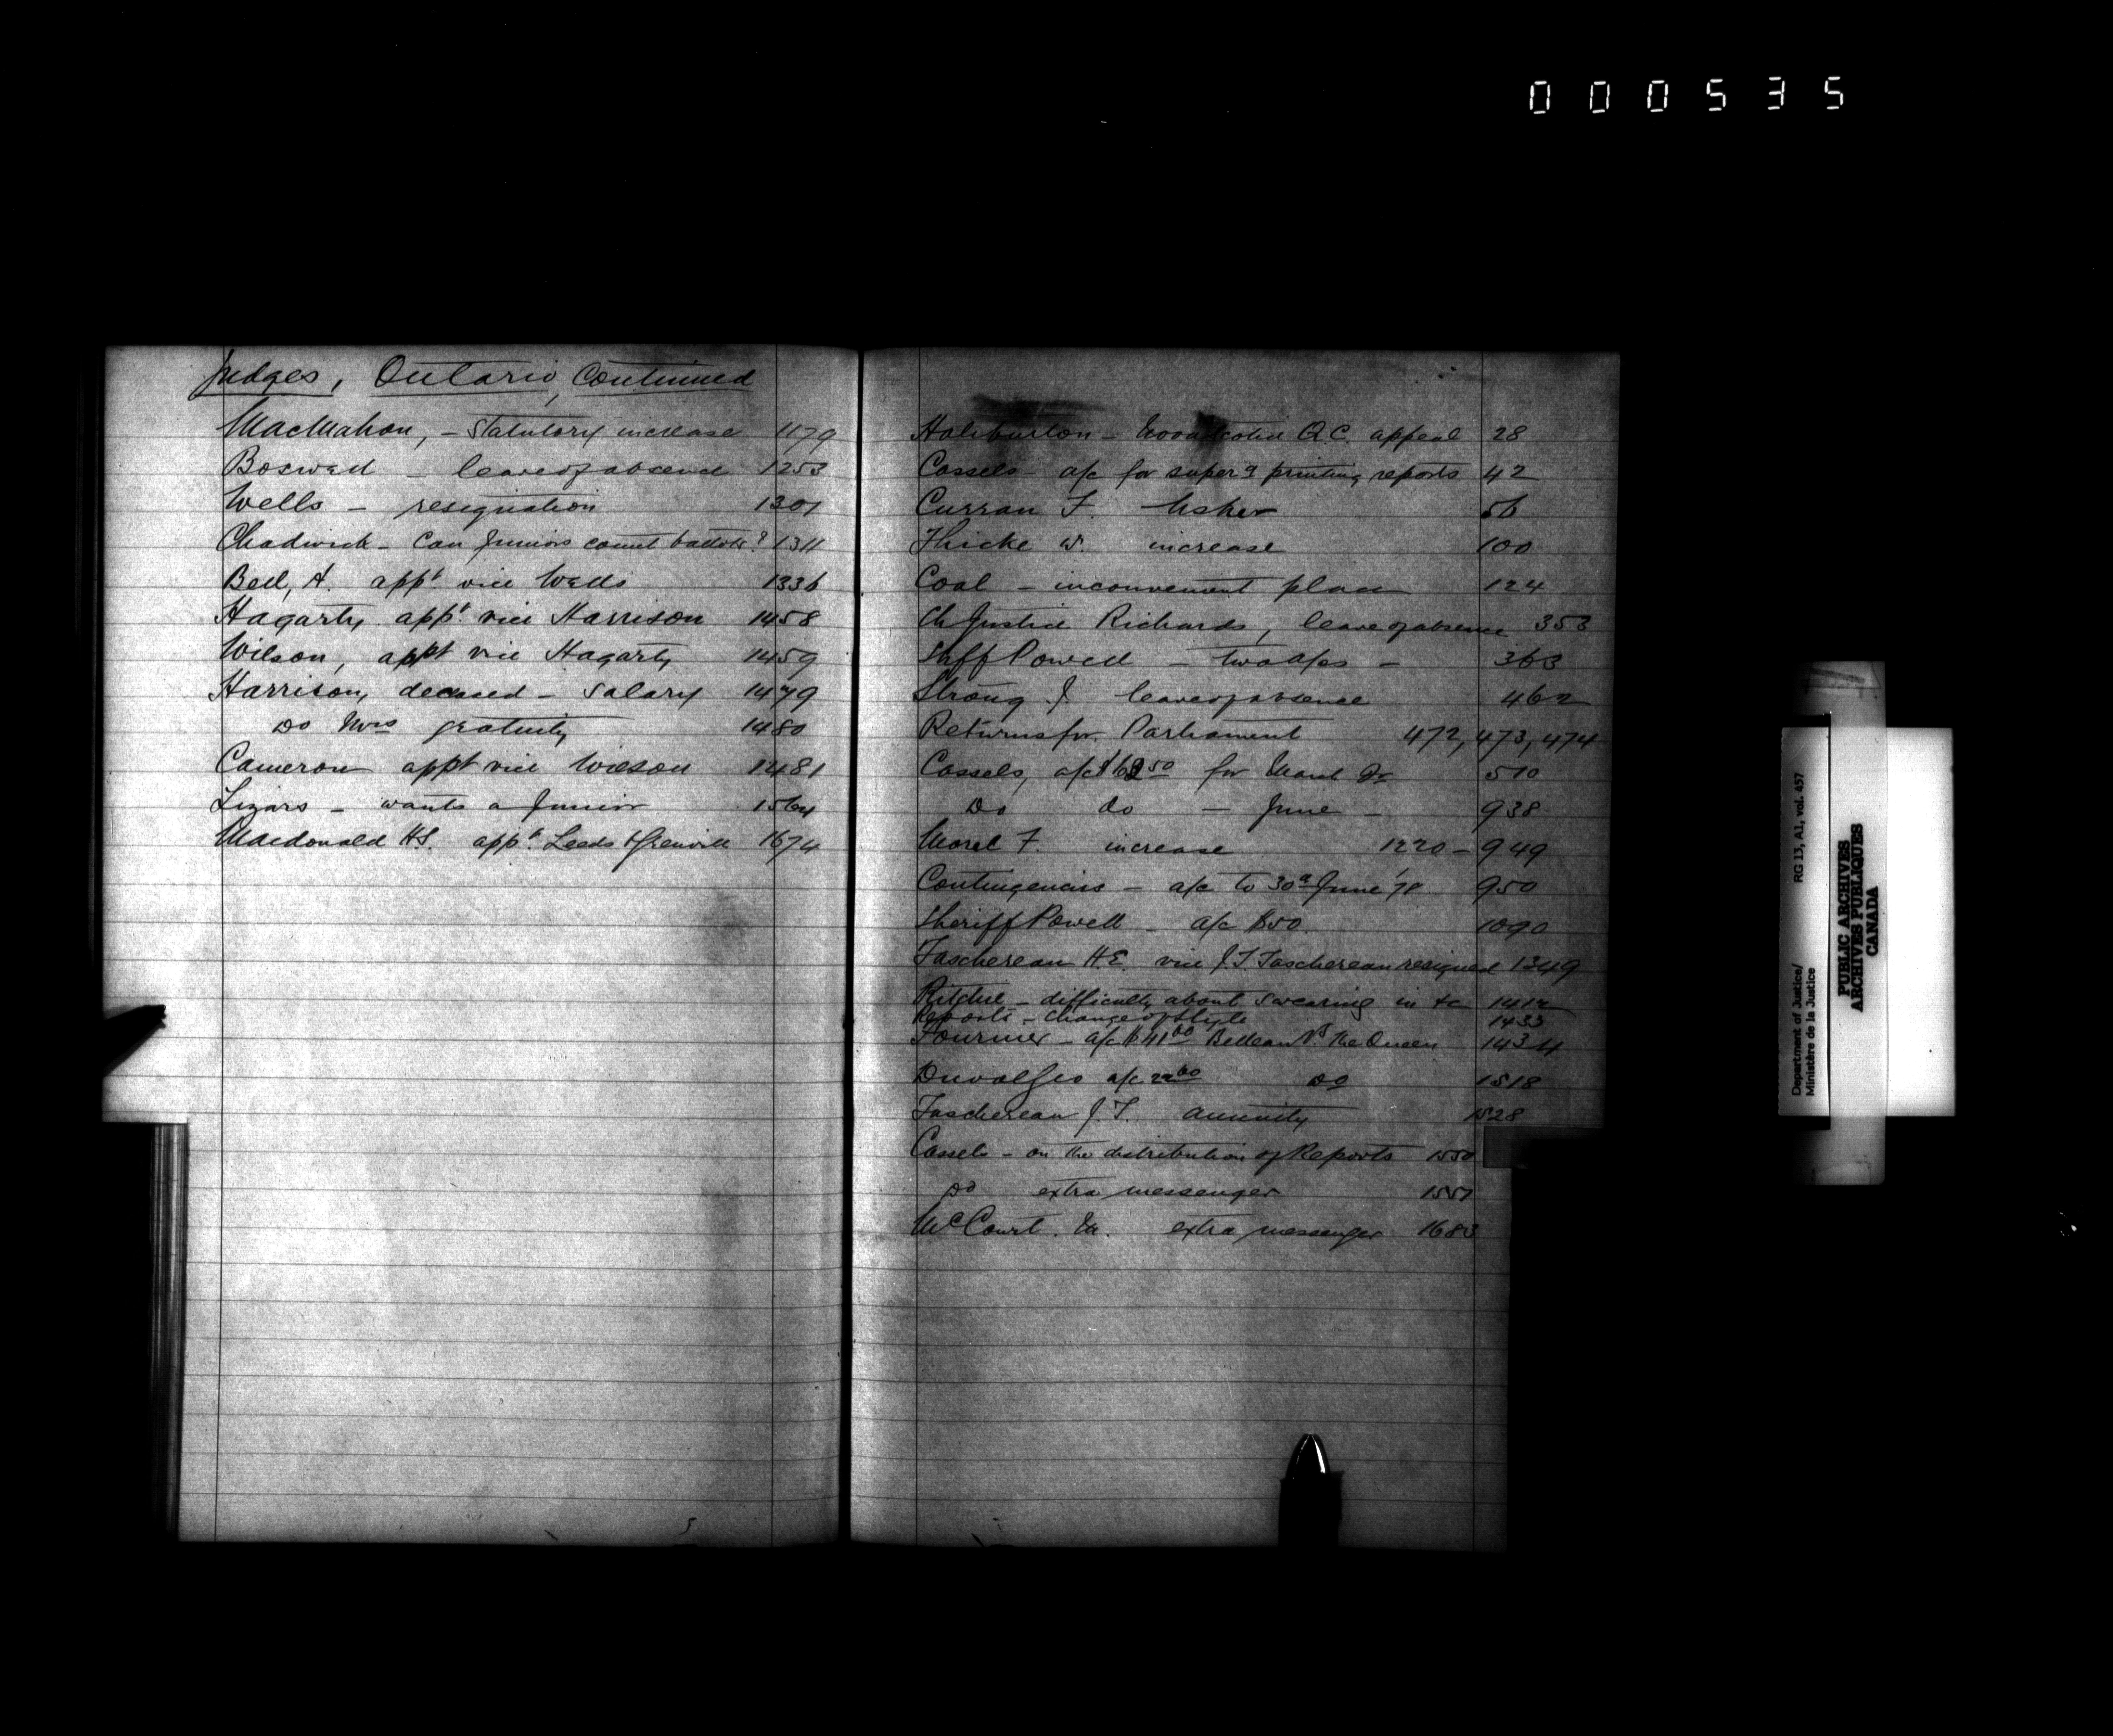 000535
Judges, Ontario, Continued
MacMahon, - Statutory increase 1179
Boswell - leave of absence 1253
Wells - resignation 1301
Chadwick - Can Juniors count ballots? 1311
Bell, A. appt vice Wells 1336
Hagarty appt vice Harrison 1458
Wilson, appt vice Hagarty 1459
Harrison, deceased - Salary 1479
Do Mrs gratuity 1480
Cameron appt vice Wilson 1481
Lizars - wants a Junior 1564
Macdonald H.S. appt Leeds & Grenville 1674
Haliburton - Novascotia Q.C. appeal 28
Cassels - a/c for superg printing reports 42
Curran F. Usher 56
Thicke W. increase 100
Coal - inconvenient place 124
Ch Justice Richards, leave of absence 353
Shff Powell - two a/cs - 363
Strong J leave of absence 462
Returns for Parliament 472, 473, 474
Cassels, a/c for March 510
Do do - June - 938
Morel F. increase 1220 - 949
Contingencies - a/c to 30th June '78 950
Sheriff Powell - a/c $50. 1090
Taschereau H.E. vice J.T. Taschereau resigned 1349
Ritchie - difficulty about swearing in &c 1412
Reports - Change of Style 1433
Fournier - a/c $41.00 Belleau vs The Queen 1434
Duval Geo a/c 22.00 Do 1518
Taschereau J.T. annuity 1528
Cassels - on the distribution of Reports 1550
Do extra messenger 1551
McCourt. M. extra messenger 1683
Department of Justice/
Ministère de la Justice
RG 13, A1, vol. 457
PUBLIC ARCHIVES
ARCHIVES PUBLIQUES
CANADA